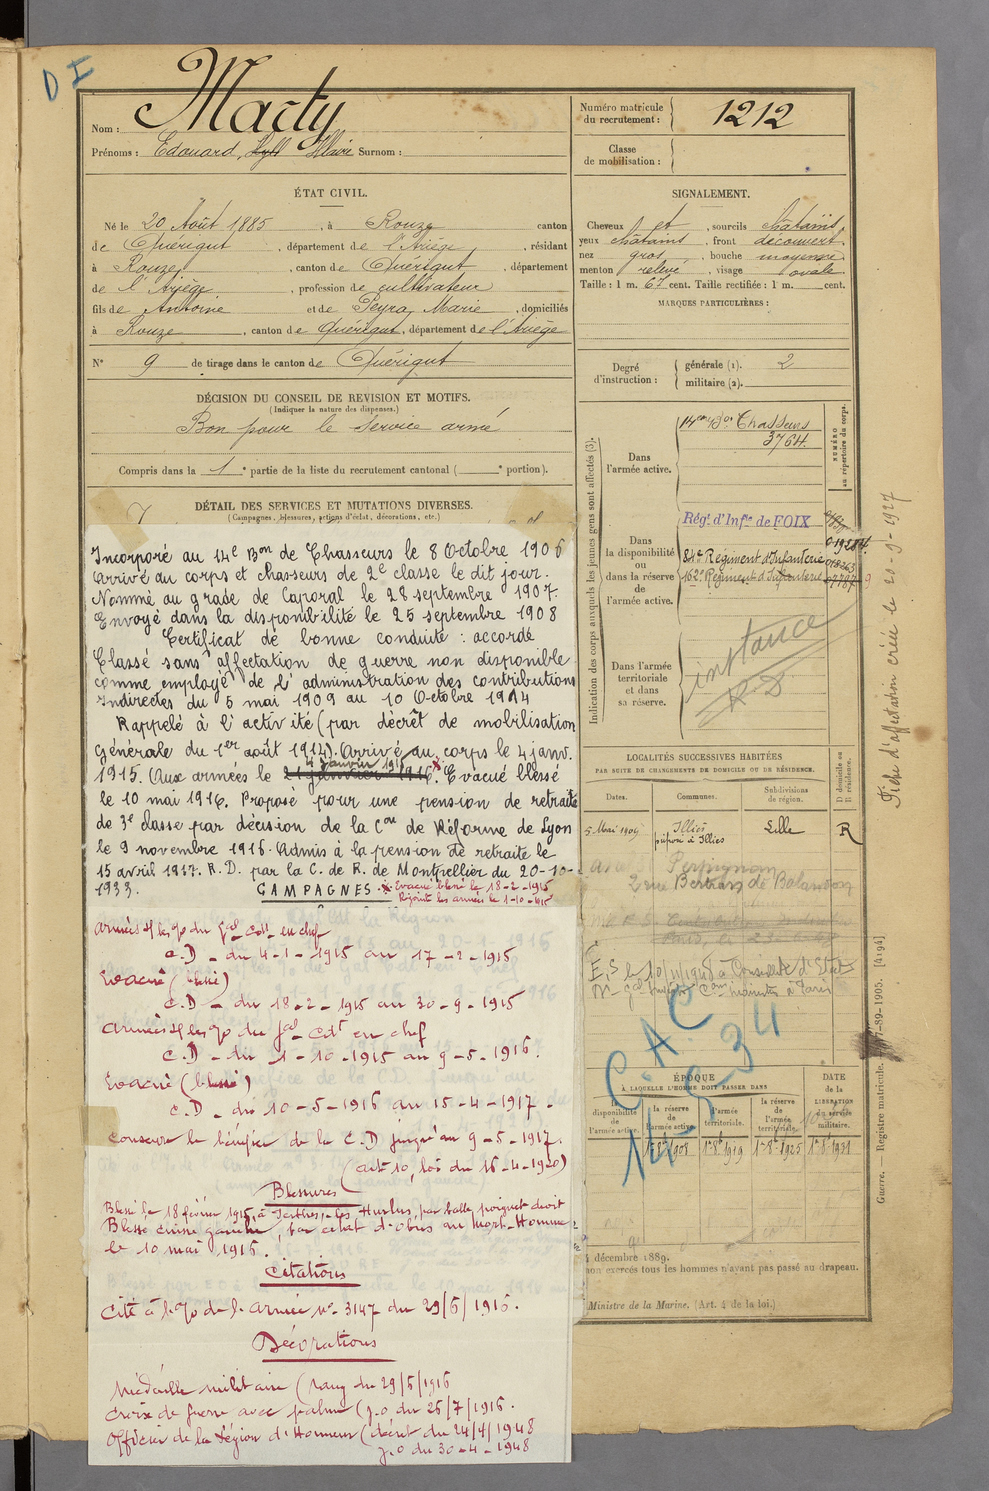 D I
Nom : Marty
Prénoms : Edouard, Hilaire Surnom :
Numéro matricule
du recrutement : 1212
Classe
de mobilisation :
ÉTAT CIVIL.
Né le 20 Août 1885, à Rouze canton
de Quérigut, département de l'Ariège, résidant
à Rouze, canton de Quérigut, département
de l'Ariège, profession de cultivateur
fils de Antoine et de Peyra, Marie, domiciliés
à Rouze, canton de Quérigut, département de l'Ariège
N° 9 de tirage dans le canton de Quérigut
DÉCISION DU CONSEIL DE REVISION ET MOTIFS.
(Indiquer la nature des dispenses.)
Bon pour le service armé
Compris dans la 1e partie de la liste du recrutement cantonal ( e portion).
DÉTAIL DES SERVICES ET MUTATIONS DIVERSES.
(Campagnes, blessures, actions d'éclat, décorations, etc.)
Incorporé au 14e Bon de Chasseurs le 8 Octobre 1906
Arrivé au corps et chasseurs de 2e classe le dit jour.
Nommé au grade de Caporal le 28 septembre 1907.
Envoyé dans la disponibilité le 25 septembre 1908
Certificat de bonne conduite : accordé
Classé sans affectation de guerre non disponible
comme employé de l'administration des contributions
indirectes du 5 mai 1909 au 10 Octobre 1914
Rappelé à l'activité (par décret de mobilisation
générale du 1er août 1914). Arrivé au corps le 4 janv.
4 Janvier 1915
1915. Aux armées le 21 janvier 1916. Evacué blessé
le 10 mai 1916. Proposé pour une pension de retraite
de 3e classe par décision de la Con de Réforme de Lyon
le 9 novembre 1916. Admis à la pension de retraite le
15 avril 1917. R.D. par la C. de R. de Montpellier du 20-10-
1933.
CAMPAGNES. x Evacué blessé le 18-2-1915
Rejoint les armées le 1-10-1915
armées s/ les %o du Gal Cdt en chef
C.D - du 4-1-1915 au 17-2-1915
Evacué (blessé)
C.D - du 18-2-1915 au 30-9-1915
armées s/ les %o du Gal Cdt en chef
C.D - du 1-10-1915 au 9-5-1916.
Evacué (blessé)
C.D - du 10-5-1916 au 15-4-1917.
conserve le bénéfice de la C.D jusqu'au 9-5-1917.
(art 10, loi du 16-4-1920)
Blessures
Blessé le 18 février 1915, à Perthes-les-Hurlus, par balle, poignet droit
Blessé cuisse gauche, par éclat d'obus au Mort-Homme
le 10 mai 1916.
Citations
Cité à l'%o de l'armée N° 3147 du 29/6/1916.
Décorations
Médaille militaire (rang du 29/5/1916
Croix de guerre avec palme (J.O du 26/7/1916.
Officier de la Légion d'Honneur (décret du 24/4/1948
J.O du 30-4-1948
SIGNALEMENT.
Cheveux et, sourcils châtains
yeux châtains, front découvert
nez gros, bouche moyenne
menton relevé, visage ovale
Taille : 1 m. 67 cent. Taille rectifiée : 1 m. cent.
MARQUES PARTICULIÈRES :
Degré
d'instruction :
générale (1). 2
militaire (2).
Indication des corps auxquels les jeunes gens sont affectés (3).
NUMÉRO
au répertoire du corps.
Dans
l'armée active.
14ème Bon Chasseurs
3764.
Dans
la disponibilité
ou
dans la réserve
de
l'armée active.
Régt. d'Infie de FOIX
81e Régiment d'Infanterie
162e Régiment d'Infanterie
Dans l'armée
territoriale
et dans
sa réserve.
instance
R.D
LOCALITÉS SUCCESSIVES HABITÉES
PAR SUITE DE CHANGEMENTS DE DOMICILE OU DE RÉSIDENCE.
Dates.
Communes.
Subdivisions
de région.
D domicile ou
R résidence.
5 Mai 1909
Illies
préposé à Illies
Lille
R
Perpignan
2 rue Bertran de Balanda
C.A.C
14-5-34
ÉPOQUE
À LAQUELLE L'HOMME DOIT PASSER DANS
DATE
de la
LIBÉRATION
du service
militaire.
la
disponibilité
de
l'armée active.
la réserve
de
l'armée active.
l'armée
territoriale.
la réserve
de
l'armée
territoriale.
1er 8bre 1908
1er 8bre 1919
1er 8bre 1925
1er 8bre 1931
décembre 1889.
non exercés tous les hommes n'ayant pas passé au drapeau.
Ministre de la Marine. (Art. 4 de la loi.)
Fiche d'affectation créée le 20-9-1927
Guerre. — Registre matricule. 7-89-1905. [4194]